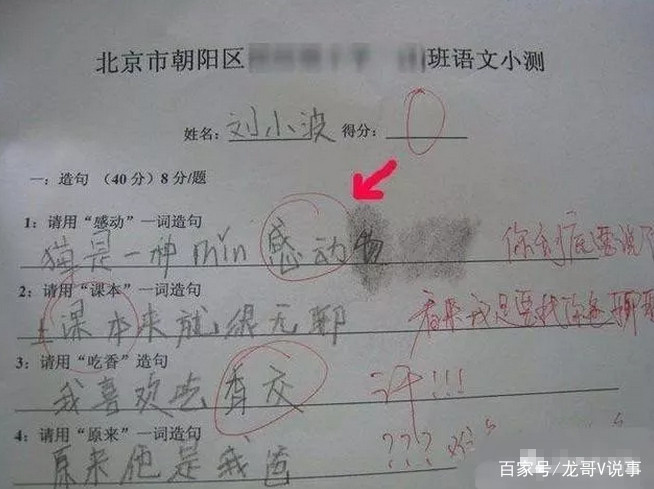 北京市朝阳区 班语文小测
姓名：刘小波 得分：0
一：造句 （40分）8分/题
1：请用“感动”一词造句
猫是一种mǐn感动物 你到底要说
2：请用“课本”一词造句
上课本来就很无聊 看来我是要找你爸聊聊
3：请用“吃香”造句
我喜欢吃香交 汗!!!
4：请用“原来”一词造句
原来他是我爸 ???
百家号/龙哥V说事